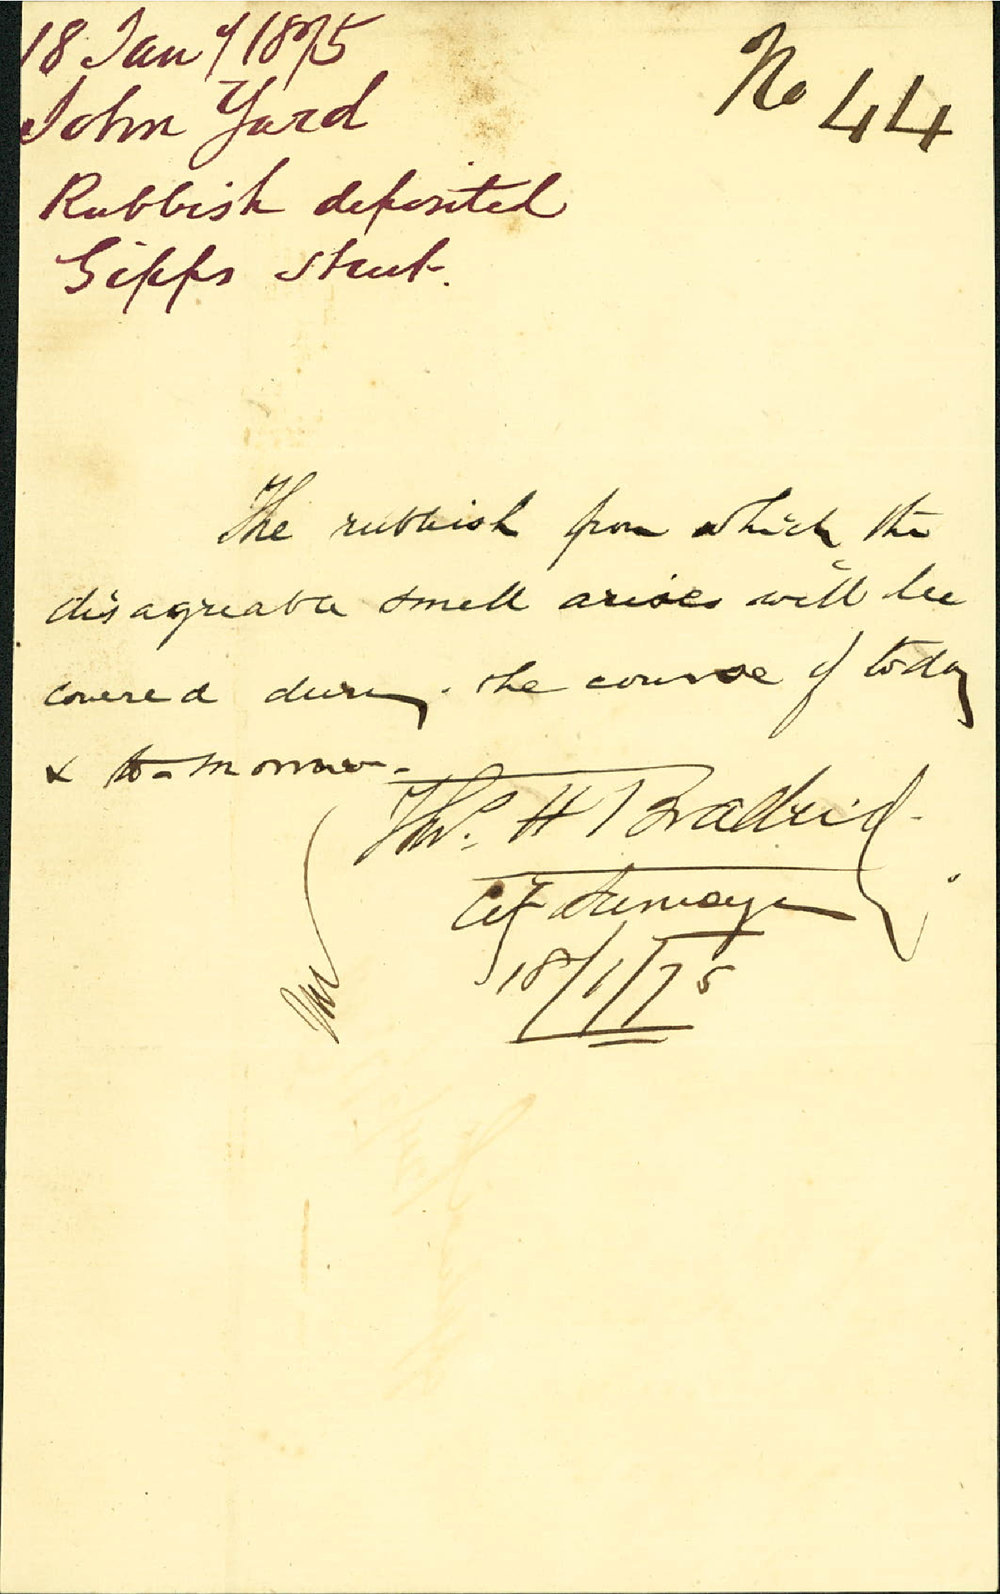 18 Jany 1875
No 44
John Yard
Rubbish deposited
Gipps Street.
The rubbish from which the
disagreable smell arises will be
covered during the course of today
& to-morrow.
Thos. H Bradridge
City Surveyor
18/1/75